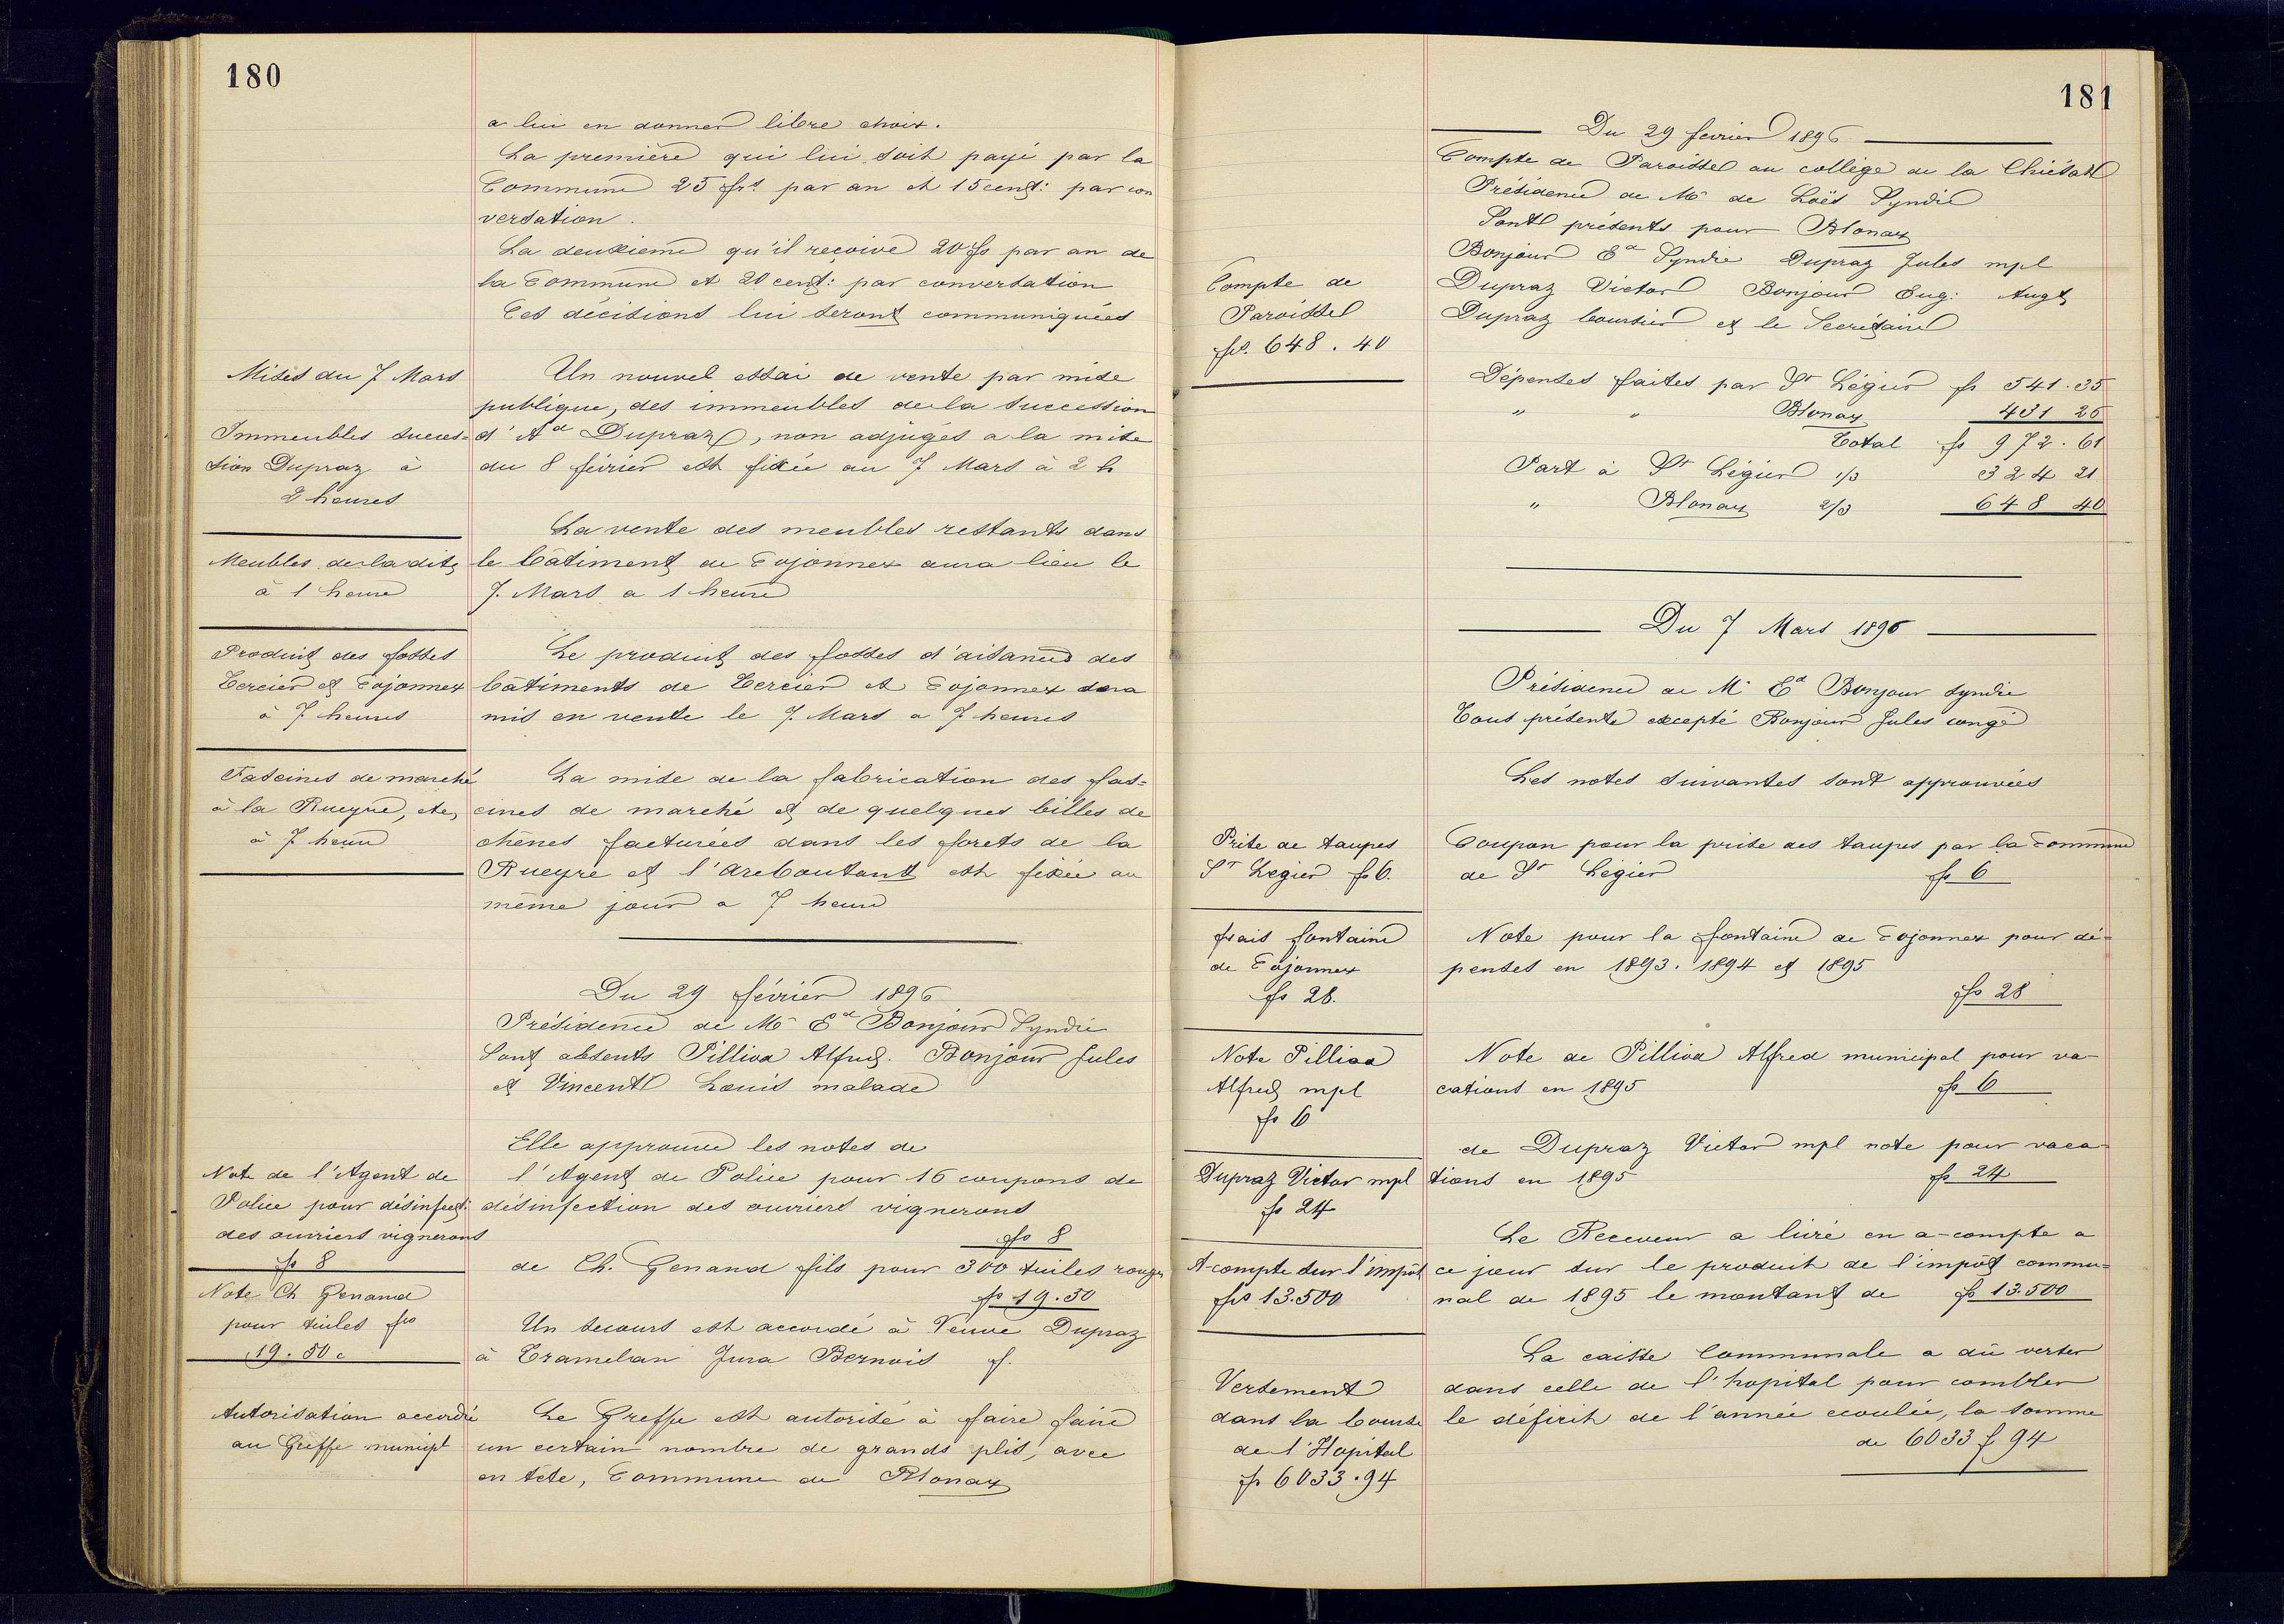 180
a lui en donner libre choix.
La première qui lui soit payé par la
Commune 25 frs par an et 15 cent: par con
versation.
La deuxième qu'il reçoive 20 fs par an de
la Commune et 20 cent: par conversation
Ces décisions lui seront communiquées
Mises du 7 Mars
Immeubles succes=
sion Dupraz à
2 heures
Un nouvel essai de vente par mise
publique, des immeubles de la succession
d'Ad Dupraz, non adjugés a la mise
du 8 février est fixée au 7 Mars à 2 h
Meubles de la dite
à 1 heure
La vente des meubles restants dans
le bâtiment de Cojonnex aura lieu le
7. Mars a 1 heure
Produit des fosses
Tercier et Cojonnex
à 7 heures
Le produit des fosses d'aisances des
bâtiments de Tercier et Cojonnex sera
mis en vente le 7. Mars a 7 heures
Fascines de marché
à la Rueyre, etc,
à 7 heure
La mise de la fabrication des fas=
cines de marché et de quelques billes de
chênes facturées dans les forets de la
Rueyre et l'arcboutant est fixée au
même jour a 7 heure
Du 29 février 1896
Présidence de Mr Ed Bonjour Syndic
Sont absents Pilliod Alfred. Bonjour Jules
et Vincent Louis malade
Elle approuve les notes de
Note de l'Agent de
Police pour désinfect:
des ouvriers vignerons
fs 8
l'Agent de Police pour 16 coupons de
désinfection des ouvriers vignerons
fs 8
Note Ch Genand
pour tuiles frs
19.50 c
de Ch. Genand fils pour 300 tuiles rouges
fs 19.50
Un secours est accordé à Veuve Dupraz
à Tramelan Jura Bernois f.
Autorisation accordée
au Greffe municipl
Le Greffe est autorisé à faire faire
un certain nombre de grands plis, avec
en tête, Commune de Blonay
181
Du 29 février 1896
Compte de Paroisse au collège de la Chiésaz
Présidence de Mr de Loës Syndic
Sont présents pour Blonay
Bonjour Ed Syndic Dupraz Jules mpl
Dupraz Victor Bonjour Eug: Augt
Dupraz boursier et le Secrétaire
Compte de
Paroisse
frs. 648.40
Dépenses faites par St Légier fs 541.35
" " Blonay 431 26
Total fs 972.61
Part à St Légier 1/3 324 21
" Blonay 2/3 648 40
Du 7 Mars 1896
Présidence de Mr Ed Bonjour syndic
Tous présents excepté Bonjour Jules congé
Les notes suivantes sont approuvées
Prise de taupes
St Légier fs 6.
Coupon pour la prise des taupes par la Commune
de St Légier fs 6
frais fontaine
de Cojonnex
fs 28.
Note pour la fontaine de Cojonnex pour dé=
penses en 1893. 1894 et 1895
fs 28
Note Pilliod
Alfred mpl
fs 6
Note de Pilliod Alfred municipal pour va-
cations en 1895 fs 6
Dupraz Victor mpl
fs 24
de Dupraz Victor mpl note pour vaca-
tions en 1895 fs 24
A-compte sur l'impôt
frs 13.500
Le Receveur a livré en a-compte a
ce jour sur le produit de l'impôt commu=
nal de 1895 le montant de fs 13.500
Versement
dans la bourse
de l'Hopital
fs 6033.94
La caisse Communale a dû verser
dans celle de l'hopital pour combler
le déficit de l'année ecoulée, la somme
de 6033 f 94